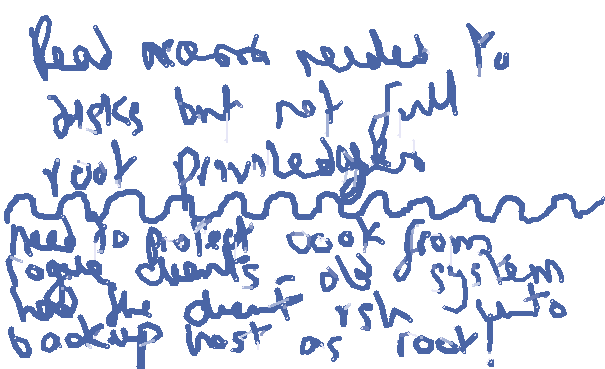 Read access needed to
disks but not full
root priviledges
need to protect ook from
rogue clients - old system
had the client rsh into
backup host as root!